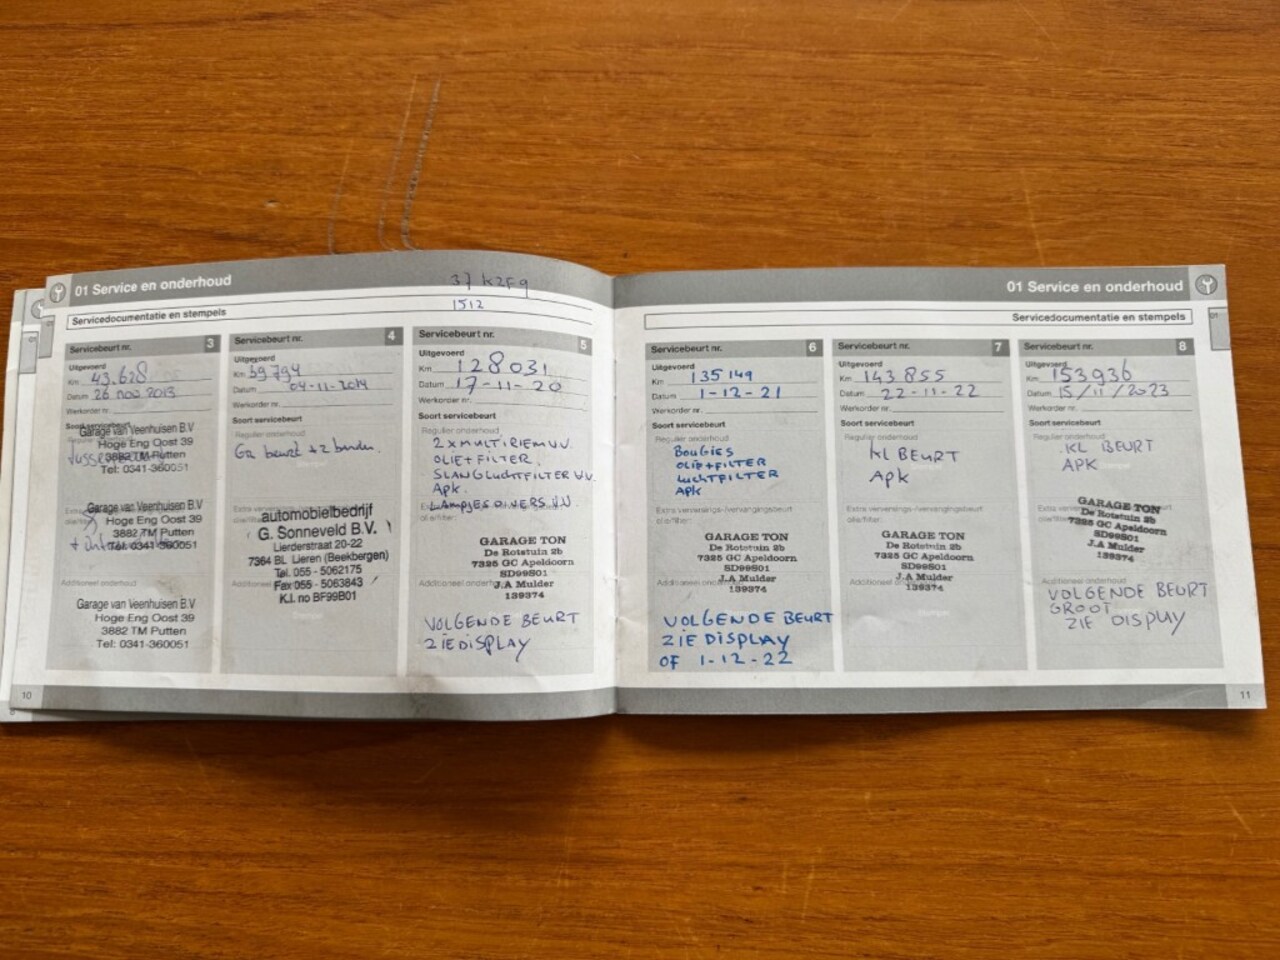 01 Service en onderhoud
37 KZF9
1512
Servicedocumentatie en stempels
Servicebeurt nr. 3
Uitgevoerd
Km 43.628
Datum 26 nov 2013
Werkorder nr.
Soort servicebeurt
Garage van Veenhuisen B.V
Hoge Eng Oost 39
3882 TM Putten
Tel: 0341-360051
Garage van Veenhuisen B.V
Hoge Eng Oost 39
3882 TM Putten
Tel: 0341-360051
Additioneel onderhoud
Garage van Veenhuisen B.V
Hoge Eng Oost 39
3882 TM Putten
Tel: 0341-360051
10
Servicebeurt nr. 4
Uitgevoerd
Km 59.794
Datum 04-11-2014
Werkorder nr.
Soort servicebeurt
Regulier onderhoud
Gr beurt + 2 banden.
automobielbedrijf
G. Sonneveld B.V.
Lierderstraat 20-22
7364 BL Lieren (Beekbergen)
Tel. 055 - 5062175
Fax 055 - 5063843
K.I. no BF99B01
Servicebeurt nr. 5
Uitgevoerd
Km 128031
Datum 17-11-20
Werkorder nr.
Soort servicebeurt
Regulier onderhoud
2 x MULTIRIEM V.V.
OLIE + FILTER.
SLANG LUCHTFILTER V.V.
APK.
LAMPJES DIVERS V.V.
GARAGE TON
De Rotstuin 2b
7325 GC Apeldoorn
SD99S01
J.A Mulder
139374
VOLGENDE BEURT
ZIE DISPLAY
01 Service en onderhoud
Servicedocumentatie en stempels
Servicebeurt nr. 6
Uitgevoerd
Km 135149
Datum 1-12-21
Werkorder nr.
Soort servicebeurt
Regulier onderhoud
BOUGIES
OLIE + FILTER
LUCHTFILTER
APK
Extra verversings-/vervangingsbeurt
oliefilter:
GARAGE TON
De Rotstuin 2b
7325 GC Apeldoorn
SD99S01
J.A Mulder
139374
VOLGENDE BEURT
ZIE DISPLAY
OF 1-12-22
Servicebeurt nr. 7
Uitgevoerd
Km 143855
Datum 22-11-22
Werkorder nr.
Soort servicebeurt
Regulier onderhoud
KL BEURT
APK
Extra verversings-/vervangingsbeurt
oliefilter:
GARAGE TON
De Rotstuin 2b
7325 GC Apeldoorn
SD99S01
J.A Mulder
139374
Servicebeurt nr. 8
Uitgevoerd
Km 153936
Datum 15/11/2023
Werkorder nr.
Soort servicebeurt
Regulier onderhoud
KL BEURT
APK
GARAGE TON
De Rotstuin 2b
7325 GC Apeldoorn
SD99S01
J.A Mulder
139374
Additioneel onderhoud
VOLGENDE BEURT
GROOT
ZIE DISPLAY
11